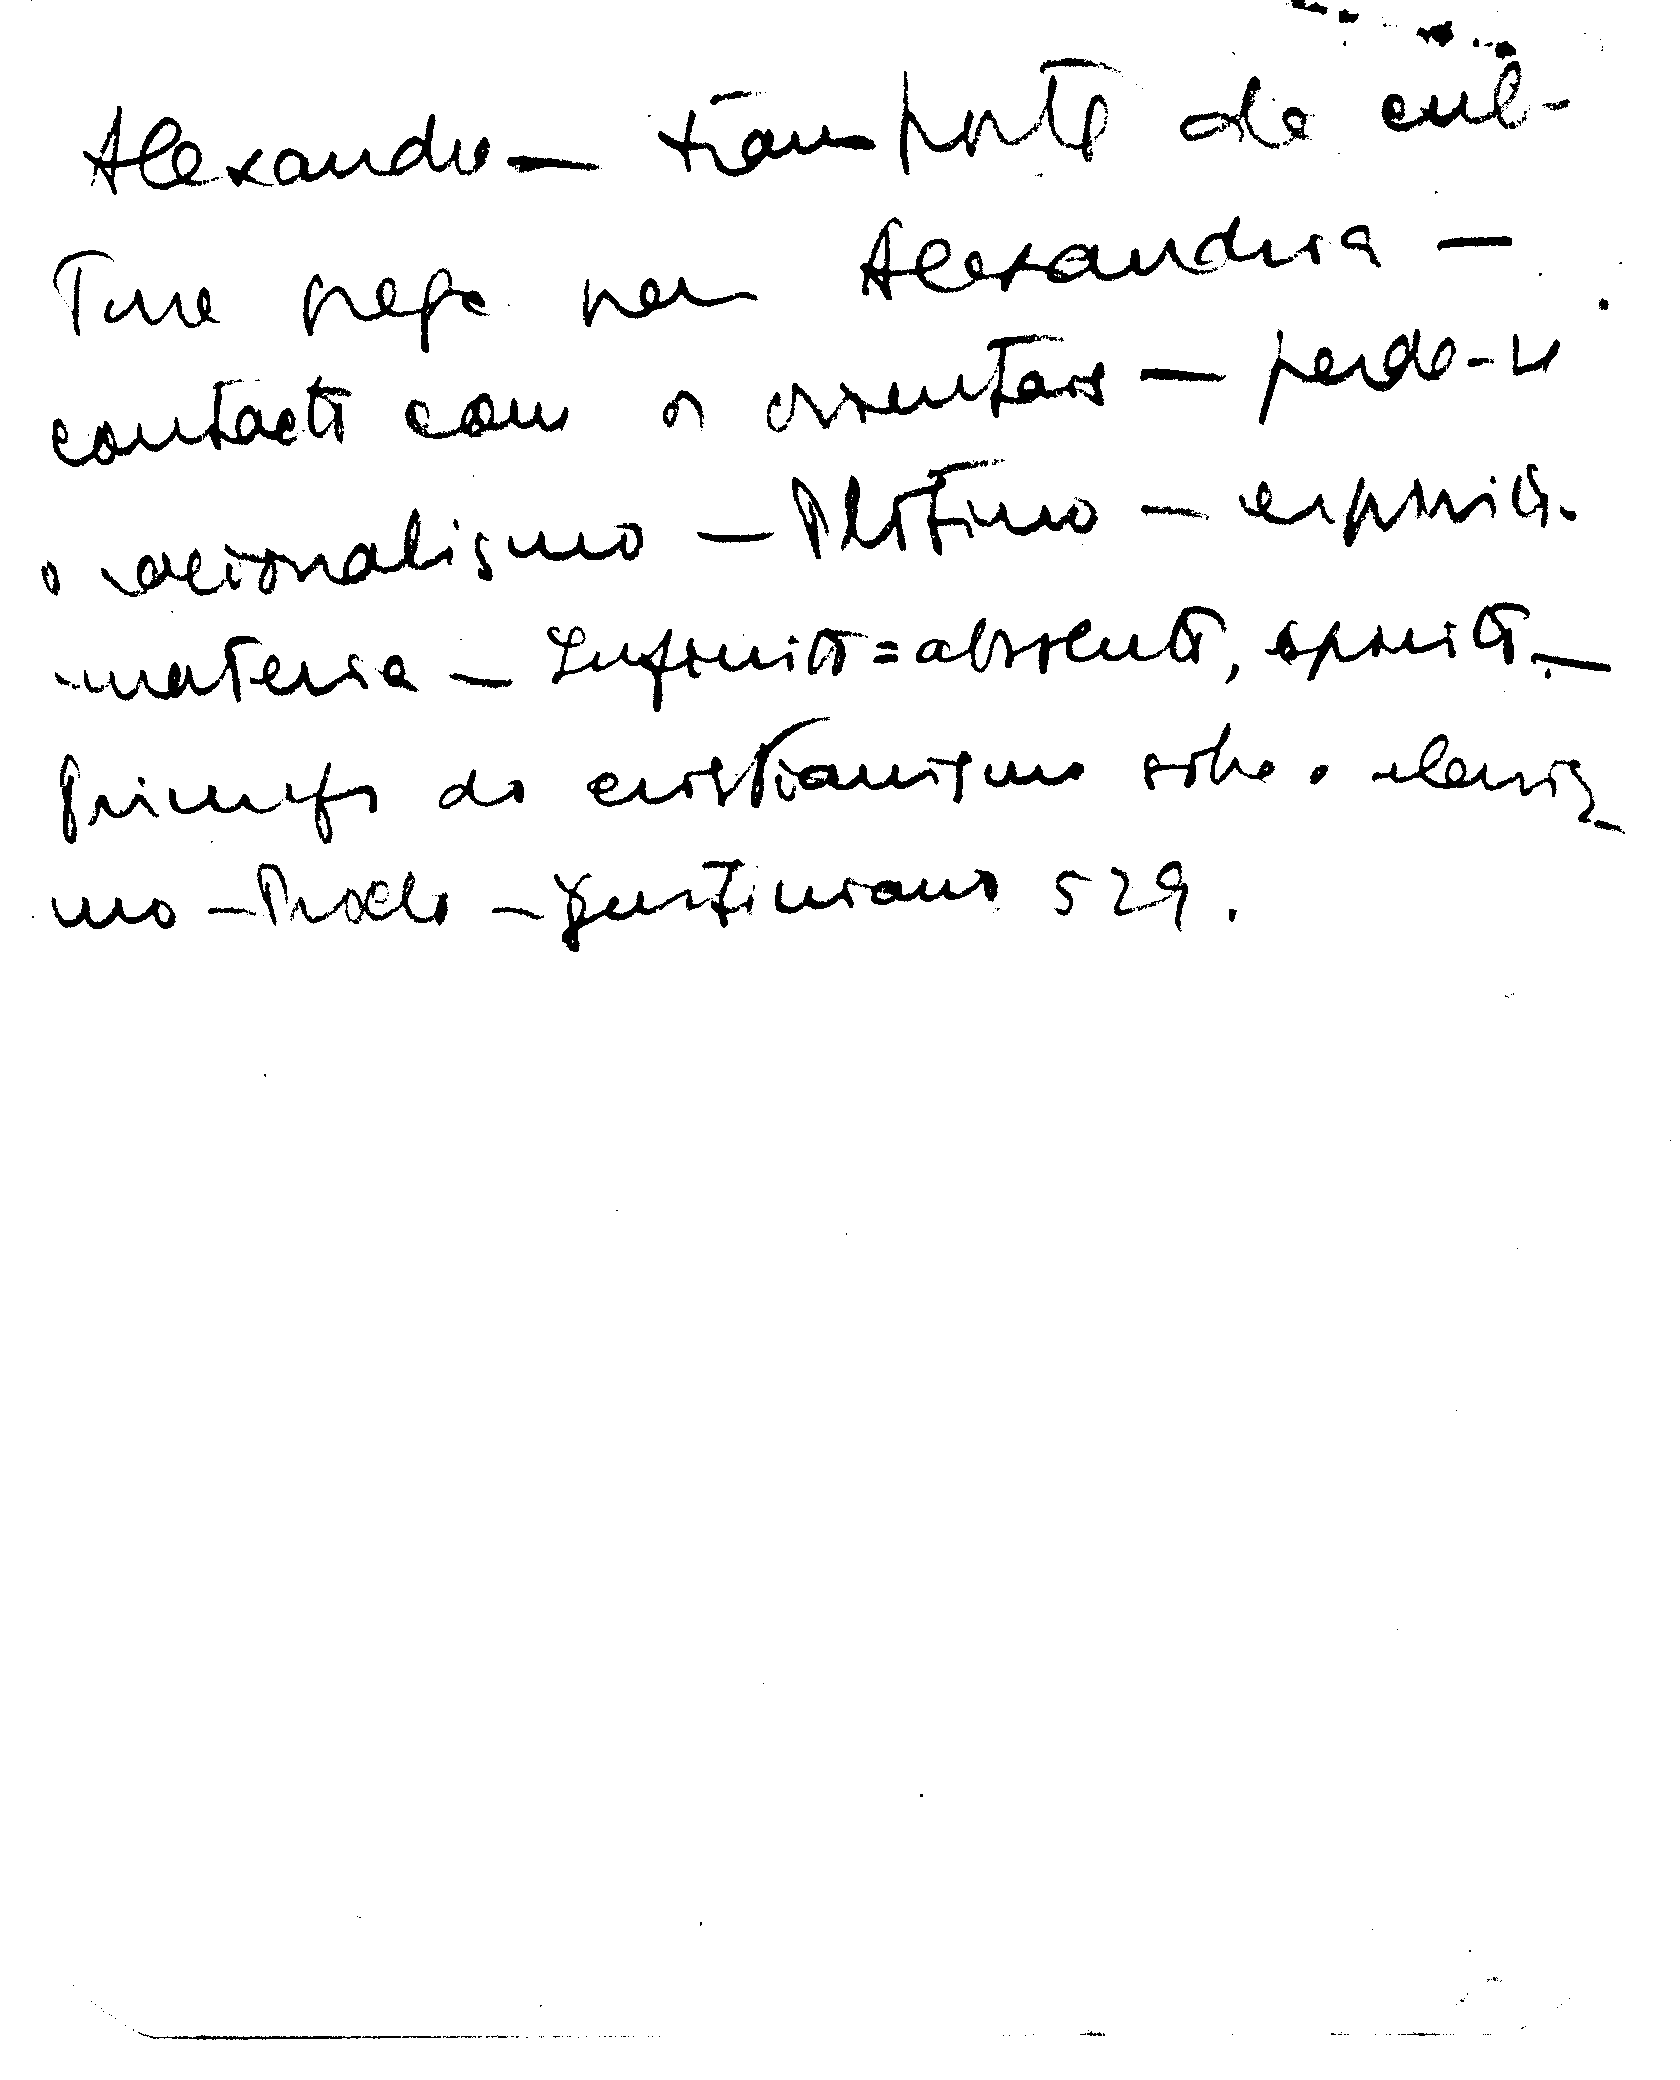 Alexandre — transporte de cul-
tura grega para Alexandria —
contacto com os orientais — perde-se
o racionalismo — Plotino — espírito.
materia — Infinito = absoluto, espirito. —
Triunfo do cristianismo sobre o elenis-
mo — Proclo — Justiniano 529.